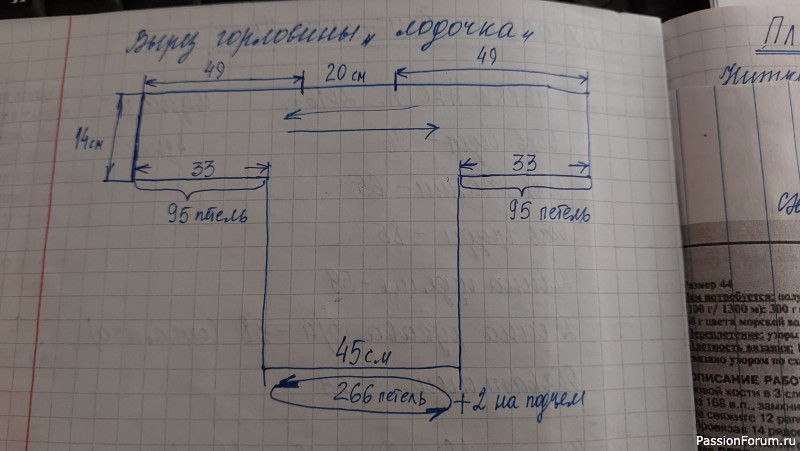 Вырез горловины „ лодочка "
49 20 см 49
14см
33 33
95 петель 95 петель
45см
266 петель + 2 на подъем
Пл
Нитки
Размер 44
потребуется: полу
100 г/ 1300 м): 300 г
г цвета морской во
Переплетение: узоры
Плотность вязания:
связано узором по сх
ОПИСАНИЕ РАБО
овой кости в 3 сло
из 168 в.п., замкни
свяжите 12 рап
Провязав 14 рядов
PassionForum.ru